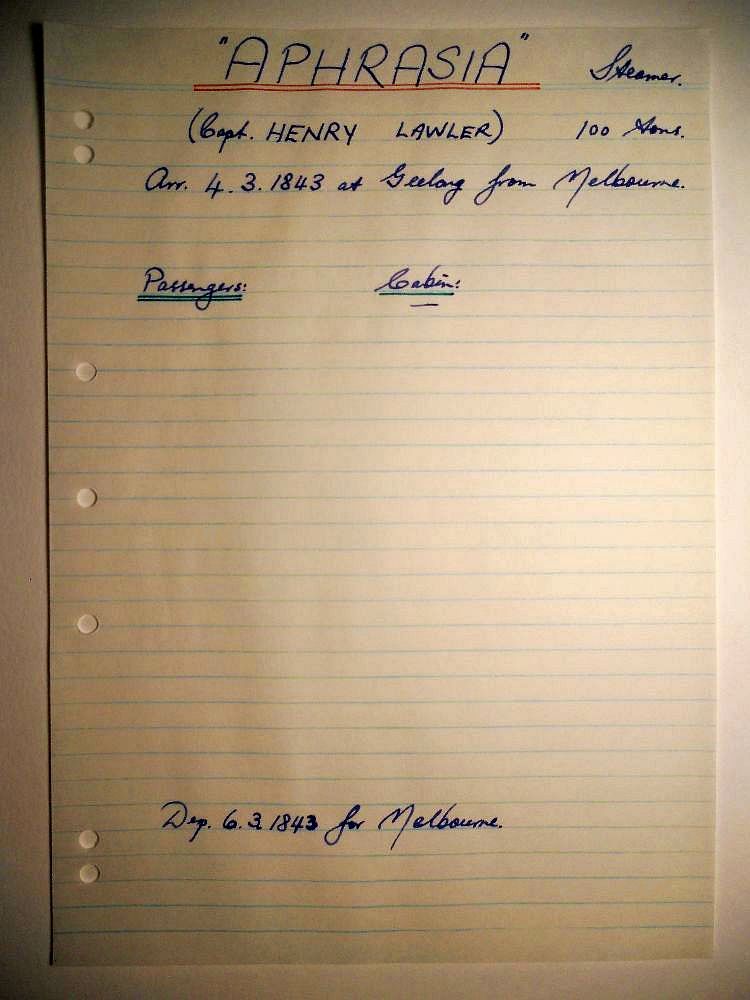 "APHRASIA" Steamer.
(Capt. HENRY LAWLER) 100 tons.
Arr. 4.3.1843 at Geelong from Melbourne.
Passengers: Cabin:
—
Dep. 6.3.1843 for Melbourne.